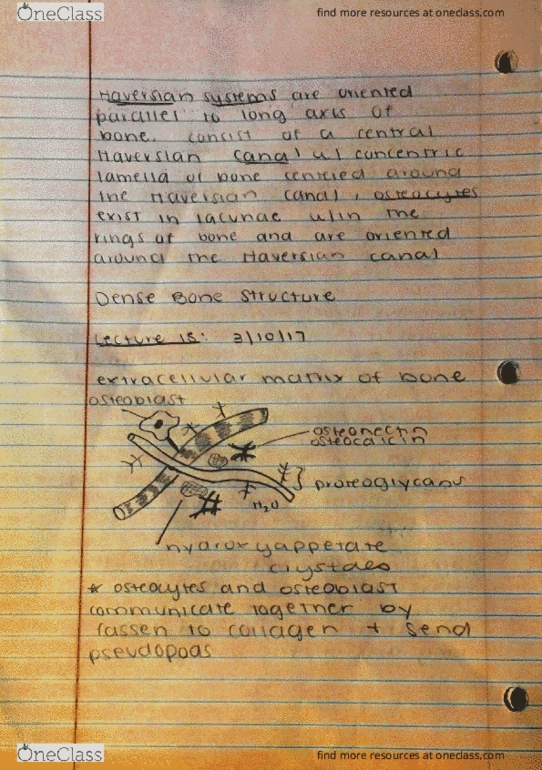 OneClass
find more resources at oneclass.com
Haversian systems are oriented
parallel to long axis of
bone. consist of a central
Haversian canal w/ concentric
lamella of bone centred around
the Haversian canal, osteocytes
exist in lacunae w/in the
rings of bone and are oriented
around the Haversian canal
Dense Bone Structure
Lecture 15: 3/10/17
extracellular matrix of bone
osteoblast
osteonectin
osteocalcin
proteoglycans
H2O
hydroxyapperate
crystals
* osteocytes and osteoblast
communicate together by
fassen to collagen + send
pseudopods
OneClass
find more resources at oneclass.com